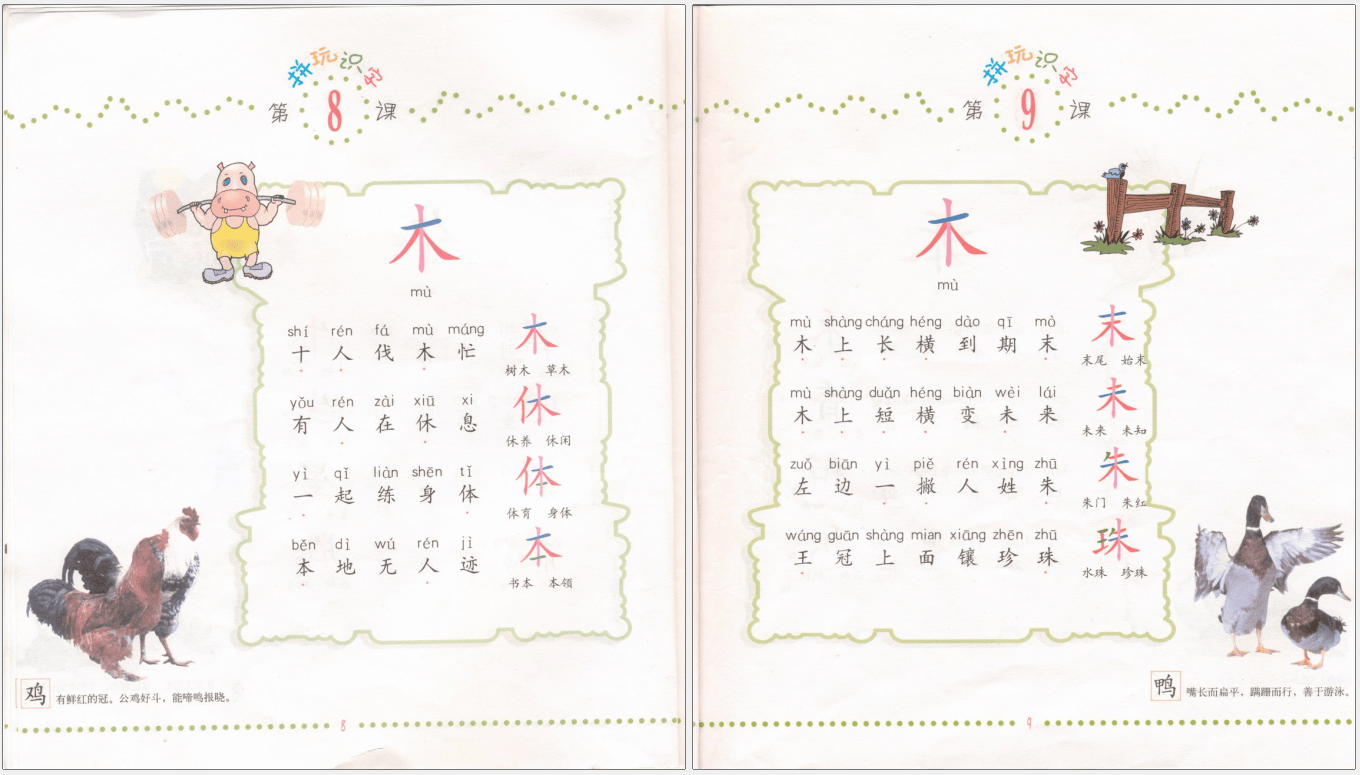 拼玩识字
第 8 课
木
mù
shí rén fá mù máng
十 人 伐 木 忙
木
树木 草木
yǒu rén zài xiū xi
有 人 在 休 息
休
休养 休闲
yì qǐ liàn shēn tǐ
一 起 练 身 体
体
体育 身体
běn dì wú rén jì
本 地 无 人 迹
本
书本 本领
鸡 有鲜红的冠。公鸡好斗，能啼鸣报晓。
8
拼玩识字
第 9 课
木
mù
mù shàng cháng héng dào qī mò
木 上 长 横 到 期 末
末
末尾 始末
mù shàng duǎn héng biàn wèi lái
木 上 短 横 变 未 来
未
未来 未知
zuǒ biān yì piě rén xìng zhū
左 边 一 撇 人 姓 朱
朱
朱门 朱红
wáng guān shàng mian xiāng zhēn zhū
王 冠 上 面 镶 珍 珠
珠
水珠 珍珠
鸭 嘴长而扁平，蹒跚而行，善于游泳。
9